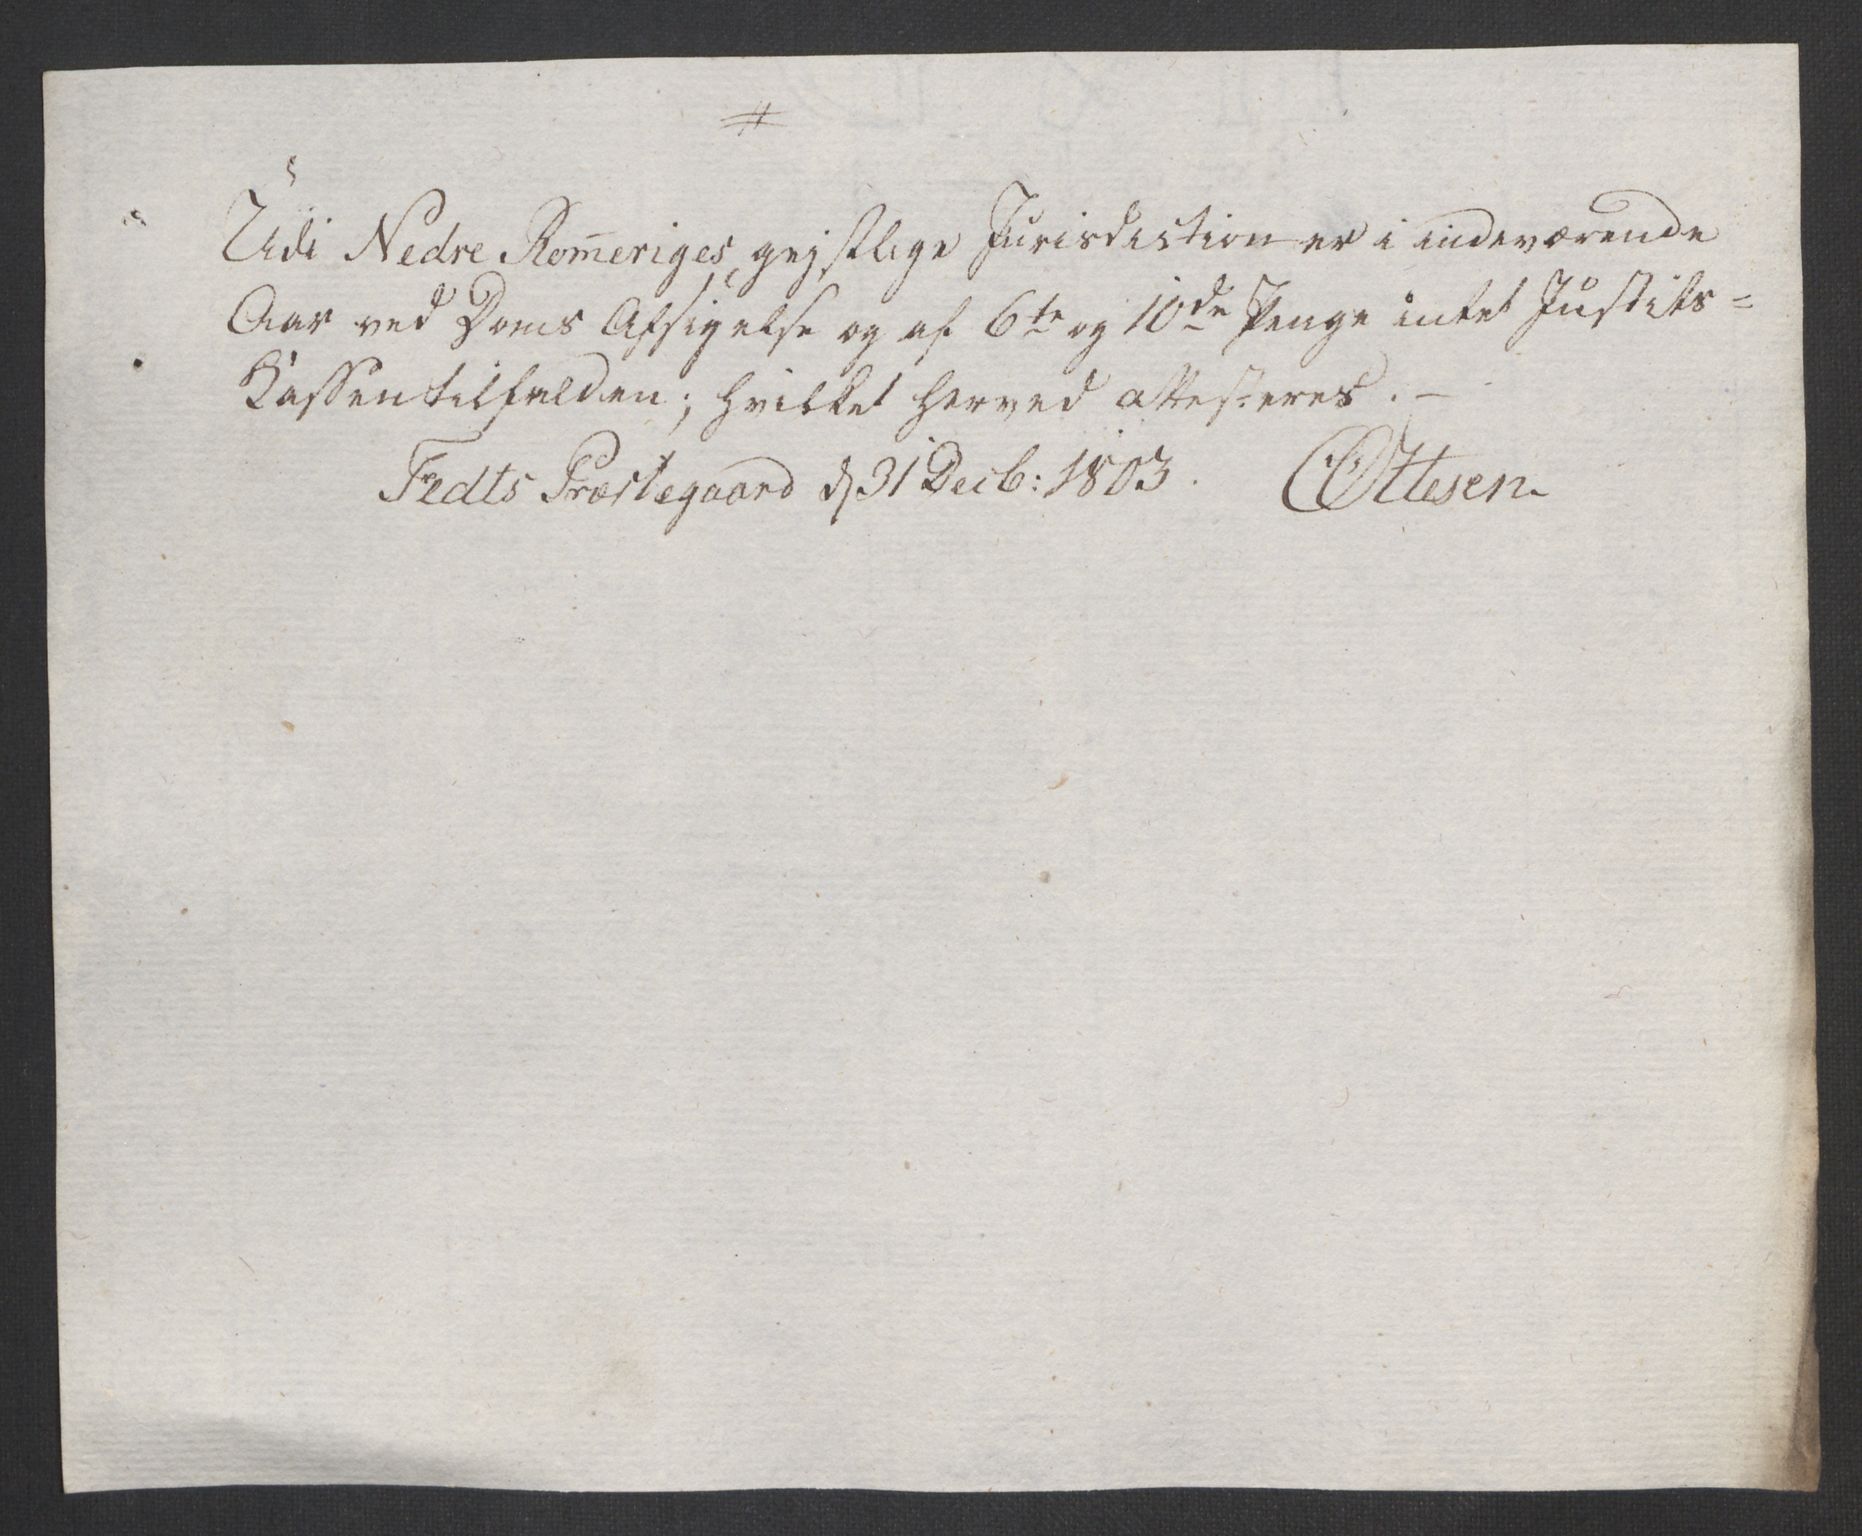 #
Udi Nedre Rom̄eriges gejstlige Jurisdiction er i indeværende
Aar ved Doms Afsigelse og af 6te og 10de Penge intet Justits=
Kassen tilfalden; hvilket herved attesteres. –
Fedts Præstegaard d 31 Decb: 1803. COttesen.